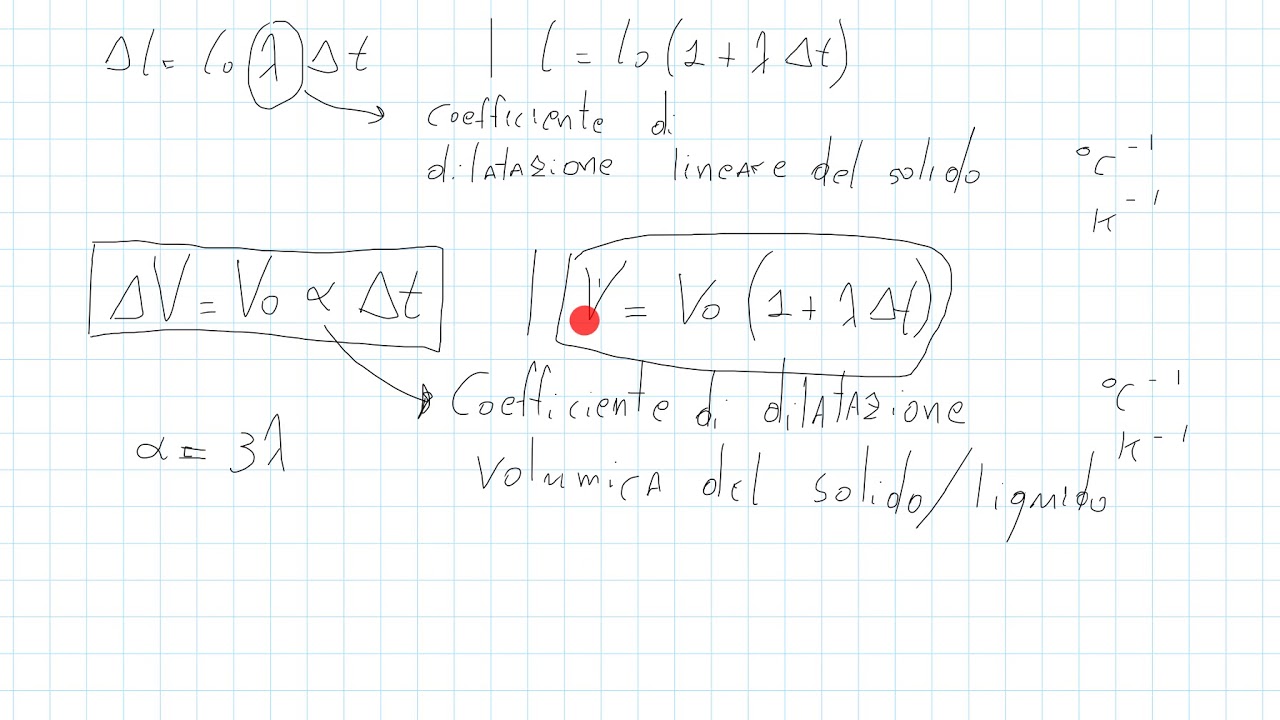 Δl = l₀ λ Δt | l = l₀ (1 + λ Δt)
coefficiente di
dilatazione lineare del solido
°C⁻¹
K⁻¹
ΔV = V₀ α Δt | V = V₀ (1 + λ Δt)
Coefficiente di dilatazione
volumica del solido/liquido
°C⁻¹
K⁻¹
α = 3λ